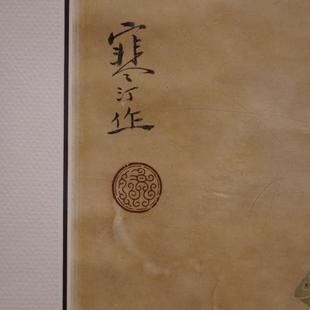 寒汀作